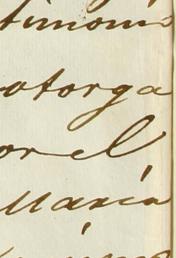 timoni
otorga
or el
Maria